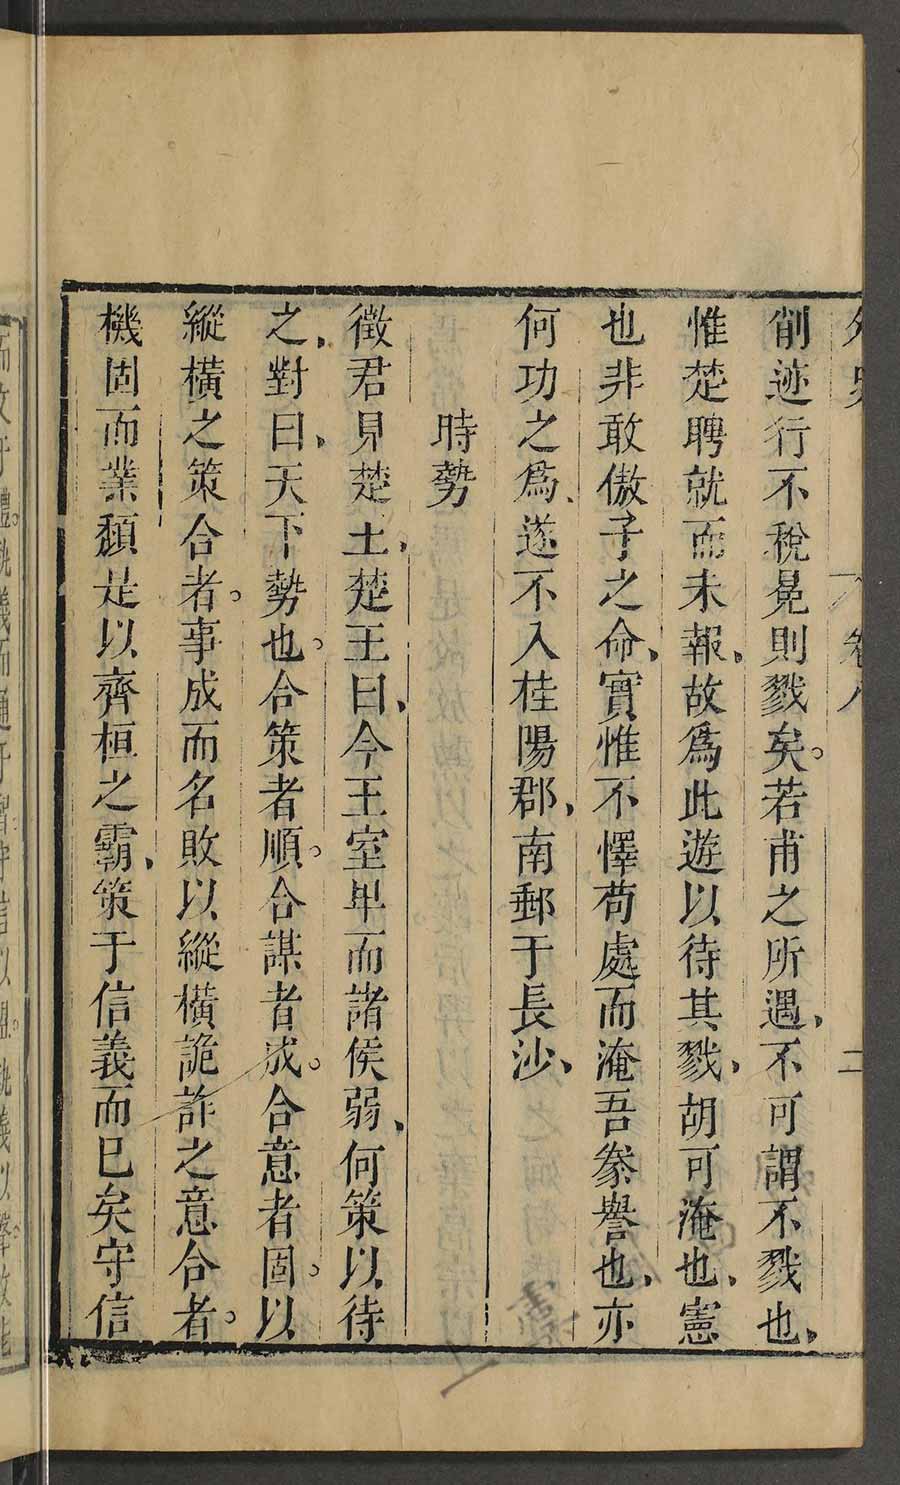 外史 卷八 二
削迹行不稅冕則戮矣。若甫之所遇、不可謂不戮也、
惟楚聘就而未報、故爲此遊以待其戮、胡可淹也、憲
也非敢傲子之命、實惟不懌苟處而淹吾豢譽也、亦
何功之爲、遂不入桂陽郡、南郵于長沙、
時勢
徵君見楚王、楚王曰、今王室卑而諸侯弱、何策以待
之、對曰、天下勢也。合策者順。合謀者成。合意者固。以
縱橫之策合者。事成而名敗以縱橫詭詐之意合者。
機固而業頹是以齊桓之霸、策于信義而已矣守信